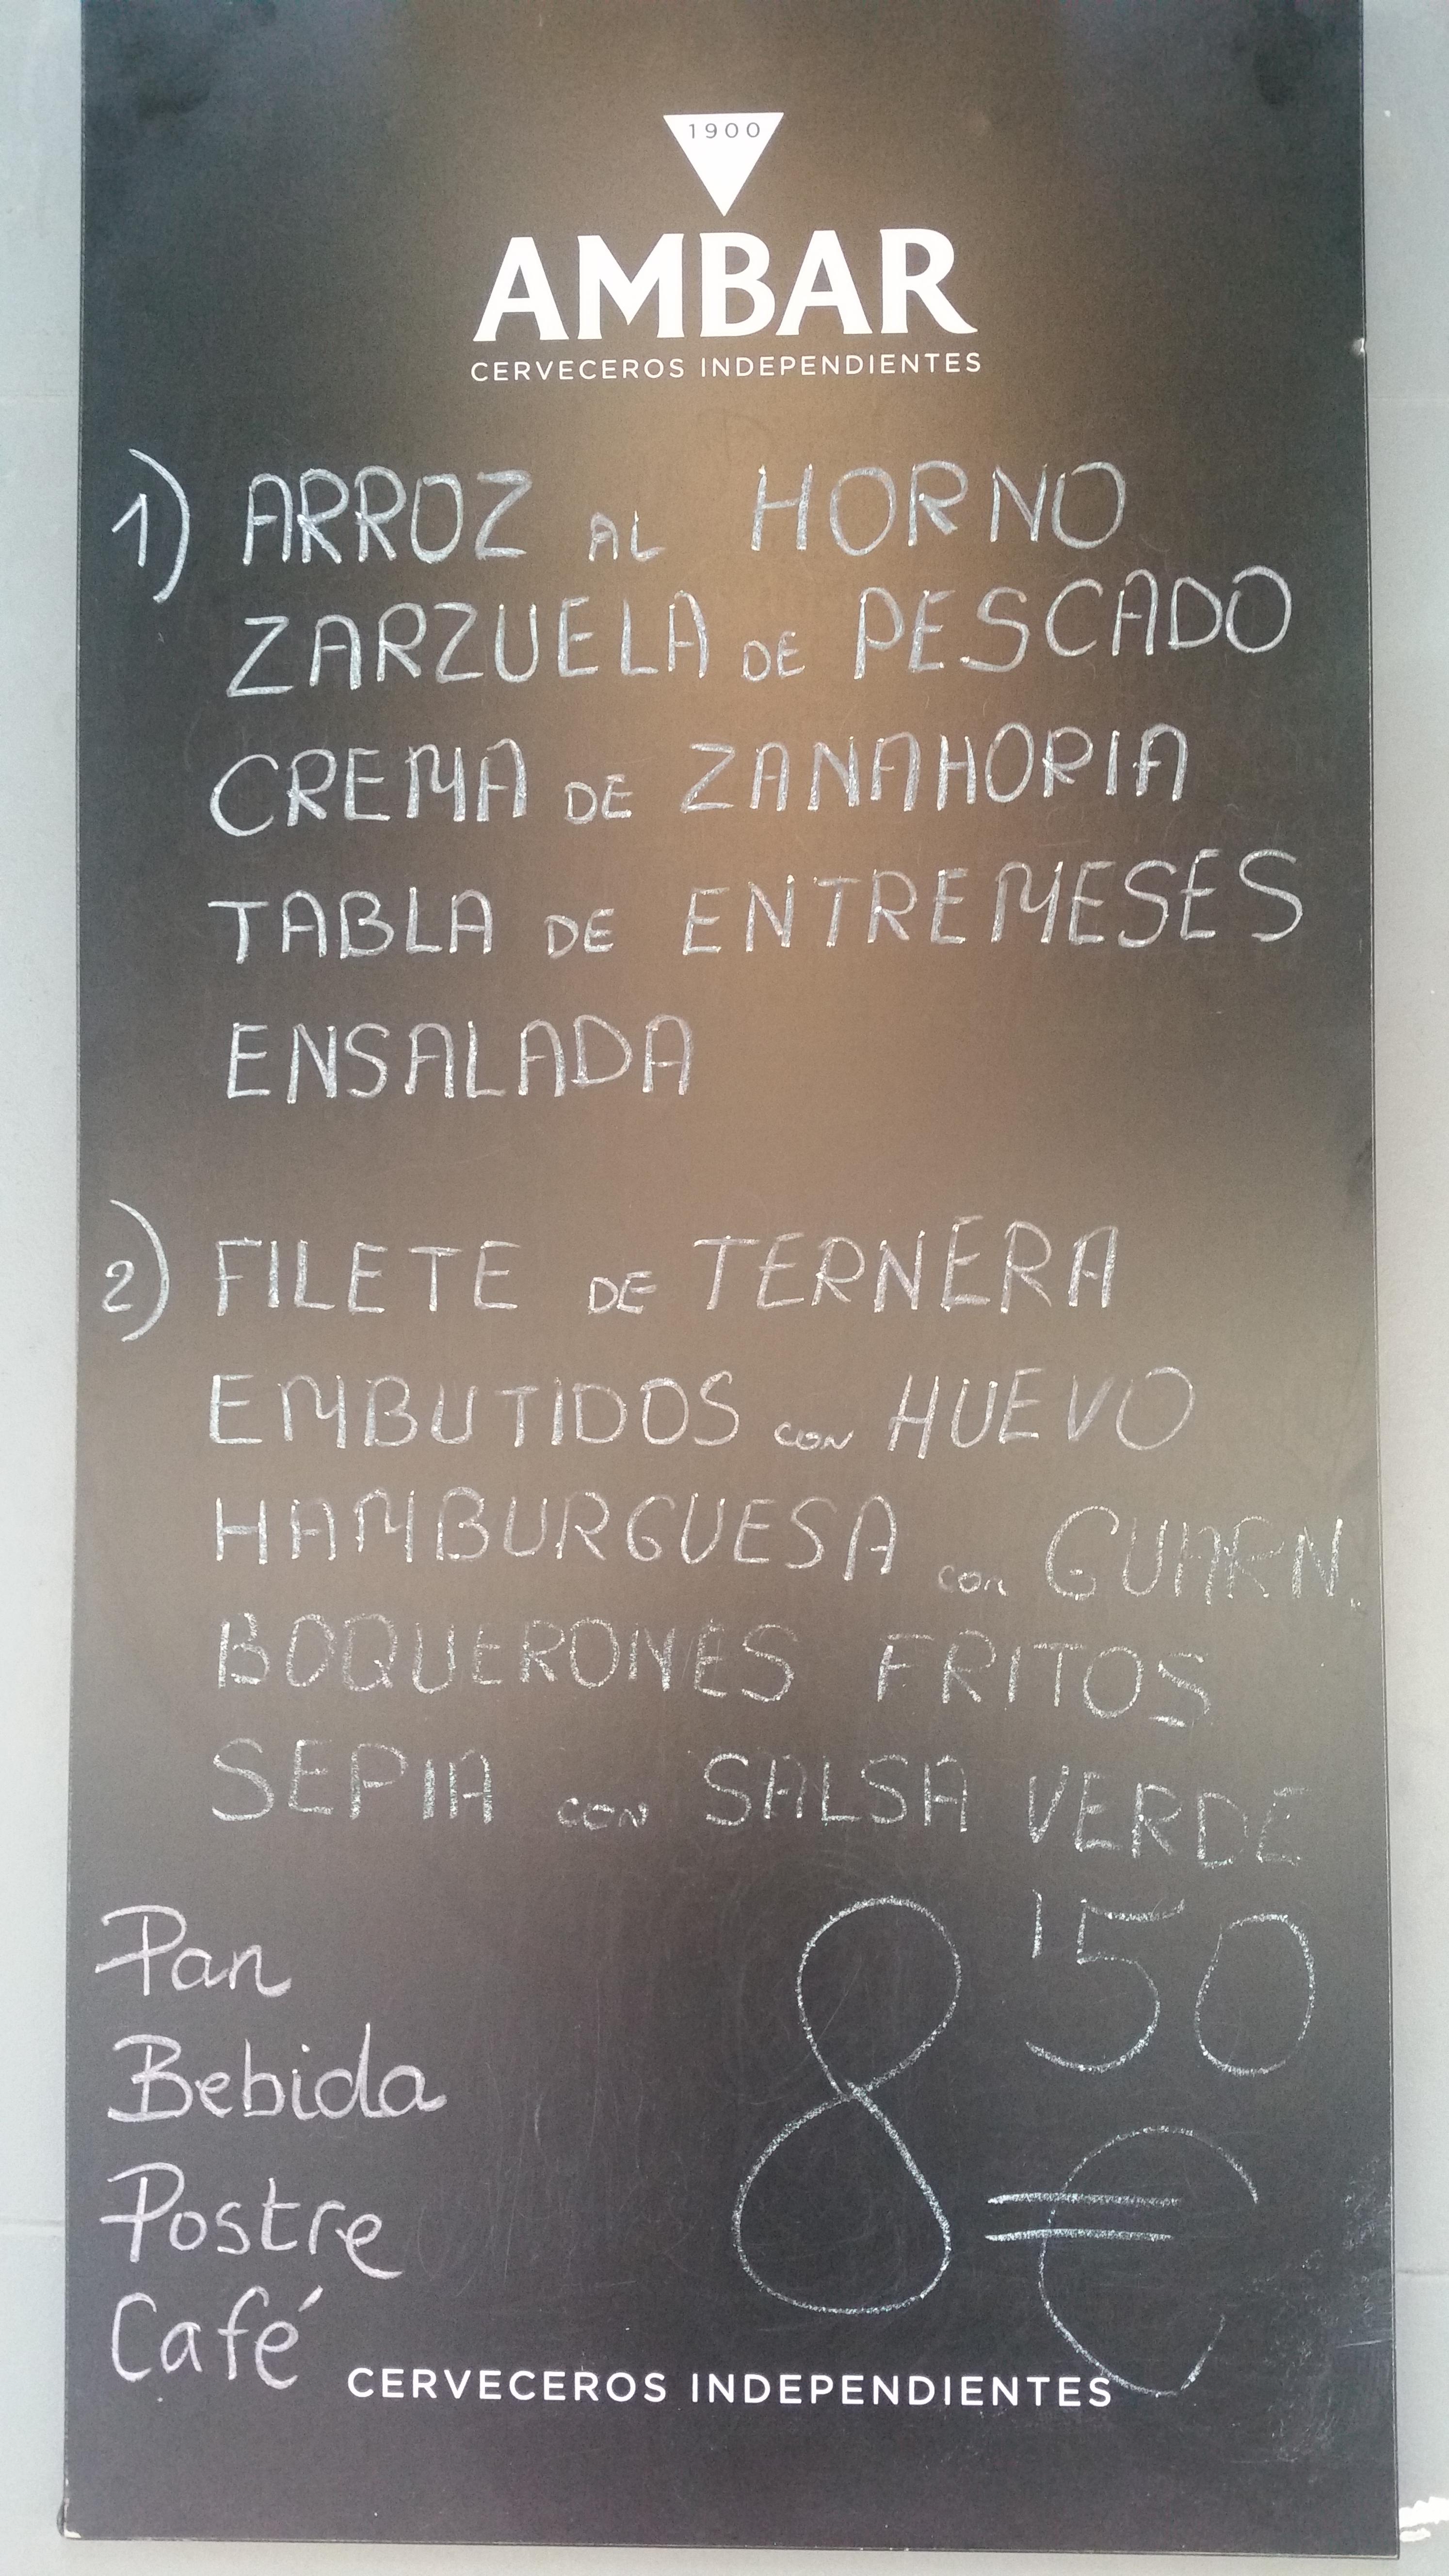 1900
AMBAR
CERVECEROS INDEPENDIENTES
1) ARROZ AL HORNO
ZARZUELA DE PESCADO
CREMA DE ZANAHORIA
TABLA DE ENTREMESES
ENSALADA
2) FILETE DE TERNERA
EMBUTIDOS CON HUEVO
HAMBURGUESA CON GUARN.
BOQUERONES FRITOS
SEPIA CON SALSA VERDE
Pan
Bebida
Postre
Café
8'50
€
CERVECEROS INDEPENDIENTES